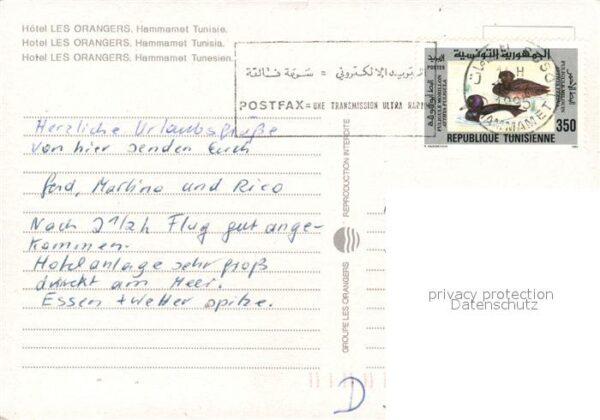 Hôtel LES ORANGERS. Hammamet Tunisie.
Hotel LES ORANGERS. Hammamet Tunisia.
Hotel LES ORANGERS. Hammamet Tunesien.
البريد الالكتروني = سرعة فائقة
POSTFAX = UNE TRANSMISSION ULTRA RAPIDE
الجمهورية التونسية
POSTES
FULIGULE MORILLON
AYTHYA FULIGULA
REPUBLIQUE TUNISIENNE
350
HAMMAMET
Herzliche Urlaubsgrüße
von hier senden Euch
Gerd, Martina und Rico
Nach 2 1/2h Flug gut ange-
kommen.
Hotelanlage sehr groß
direkt am Meer.
Essen + Wetter spitze.
GROUPE LES ORANGERS
REPRODUCTION INTERDITE
D
privacy protection
Datenschutz